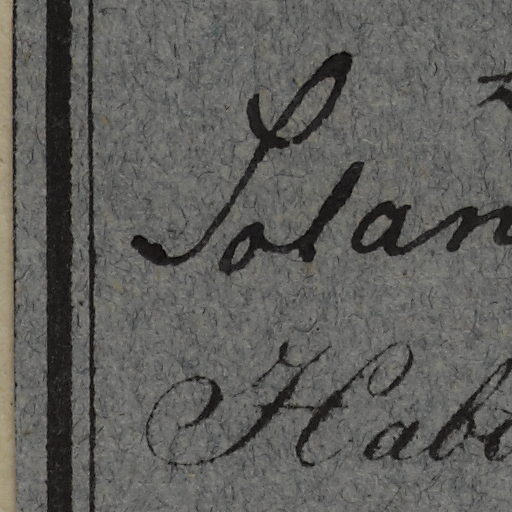 Solan
Hab